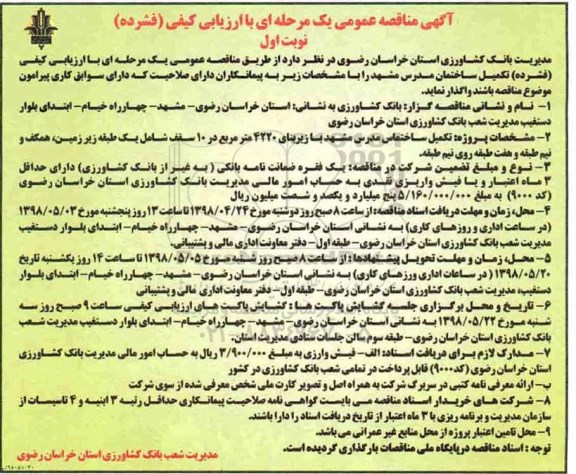 آگهی مناقصه عمومی یک مرحله ای با ارزیابی کیفی (فشرده)
نوبت اول
مدیریت بانک کشاورزی استان خراسان رضوی در نظر دارد از طریق مناقصه عمومی یک مرحله ای با ارزیابی کیفی
(فشرده) تکمیل ساختمان مدرس مشهد را با مشخصات زیر به پیمانکاران دارای صلاحیت که دارای سوابق کاری پیرامون
موضوع مناقصه باشند واگذار نماید.
۱- نام و نشانی مناقصه گزار: بانک کشاورزی به نشانی: استان خراسان رضوی- مشهد- چهارراه خیام- ابتدای بلوار
دستغیب مدیریت شعب بانک کشاورزی استان خراسان رضوی
۲- مشخصات پروژه: تکمیل ساختمان مدرس مشهد با زیربنای ۴۲۲۰ متر مربع در ۱۰ سقف شامل یک طبقه زیرزمین، همکف و
نیم طبقه و هفت طبقه روی نیم طبقه.
۳- نوع و مبلغ تضمین شرکت در مناقصه: یک فقره ضمانت نامه بانکی (به غیر از بانک کشاورزی) دارای حداقل
۳ ماه اعتبار و یا فیش واریزی نقدی به حساب امور مالی مدیریت بانک کشاورزی استان خراسان رضوی
(کد ۹۰۰۰) به مبلغ ۵/۱۶۰/۰۰۰/۰۰۰ پنج میلیارد و یکصد و شصت میلیون ریال
۴- محل، زمان و مهلت دریافت اسناد مناقصه: از ساعت ۸ صبح روز دوشنبه مورخ ۱۳۹۸/۰۴/۲۴ تا ساعت ۱۳ روز پنجشنبه مورخ ۱۳۹۸/۰۵/۰۳
(در ساعت اداری و روزهای کاری) به نشانی استان خراسان رضوی- مشهد- چهارراه خیام- ابتدای بلوار دستغیب
مدیریت شعب بانک کشاورزی استان خراسان رضوی- طبقه اول- دفتر معاونت اداری مالی و پشتیبانی.
۵- محل، زمان و مهلت تحویل پیشنهادها: از ساعت ۸ صبح روز شنبه مورخ ۱۳۹۸/۰۵/۰۵ تا ساعت ۱۴ روز یکشنبه تاریخ
۱۳۹۸/۰۵/۲۰ (در ساعات اداری و روزهای کاری) به نشانی استان خراسان رضوی- مشهد- چهارراه خیام- ابتدای بلوار
دستغیب، مدیریت شعب بانک کشاورزی استان خراسان رضوی- طبقه اول- دفتر معاونت اداری مالی و پشتیبانی
۶- تاریخ و محل برگزاری جلسه گشایش پاکت ها: گشایش پاکت های ارزیابی کیفی ساعت ۹ صبح روز سه
شنبه مورخ ۱۳۹۸/۰۵/۲۲ به نشانی استان خراسان رضوی- مشهد- چهارراه خیام- ابتدای بلوار دستغیب مدیریت شعب
بانک کشاورزی استان خراسان رضوی- طبقه سوم سالن جلسات ستادی مدیریت استان.
۷- مدارک لازم برای دریافت اسناد: الف- فیش واریزی به مبلغ ۳/۹۰۰/۰۰۰ ریال به حساب امور مالی مدیریت بانک کشاورزی
استان خراسان رضوی (کد ۹۰۰۰) قابل پرداخت در تمامی شعب بانک کشاورزی در کشور
ب- ارائه معرفی نامه کتبی در سربرگ شرکت به همراه اصل و تصویر کارت ملی شخص معرفی شده از سوی شرکت
۸- شرکت های خریدار اسناد مناقصه می بایست گواهی نامه صلاحیت پیمانکاری حداقل رتبه ۳ ابنیه و ۴ تاسیسات از
سازمان مدیریت و برنامه ریزی با ۳ ماه اعتبار از تاریخ دریافت اسناد را دارا باشند.
۹- محل تامین اعتبار پروژه از محل منابع غیر عمرانی می باشد.
توجه: اسناد مناقصه در پایگاه ملی مناقصات بارگذاری گردیده است.
مدیریت شعب بانک کشاورزی استان خراسان رضوی